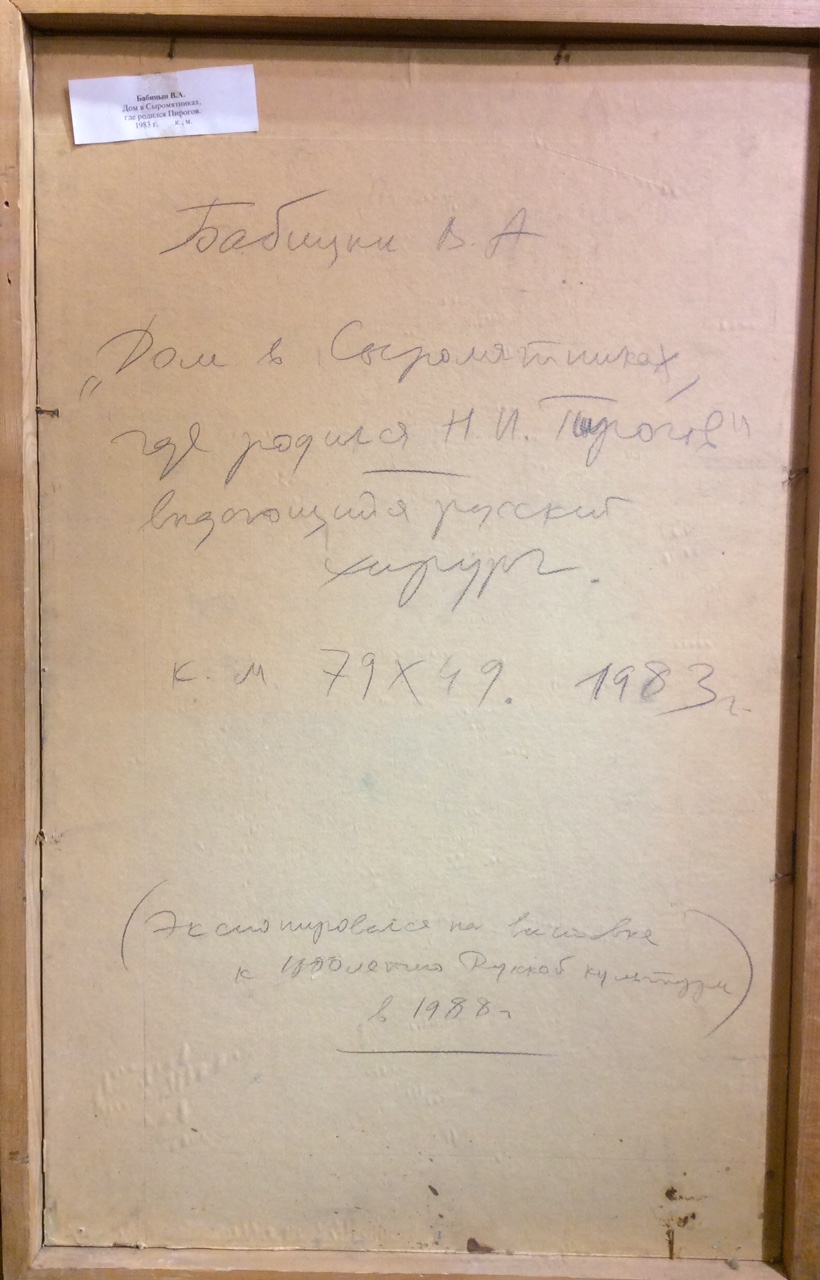 Бабицын В.А.
Дом в Сыромятниках,
где родился Пирогов.
1983 г. к., м.
Бабицын В. А
„Дом в Сыромятниках,
где родился Н. И. Пирогов"
выдающийся русский
хирург.
к. м 79 X 49. 1983 г.
(Экспонировался на выставке
к 1000летию Русской культуры)
в 1988 г